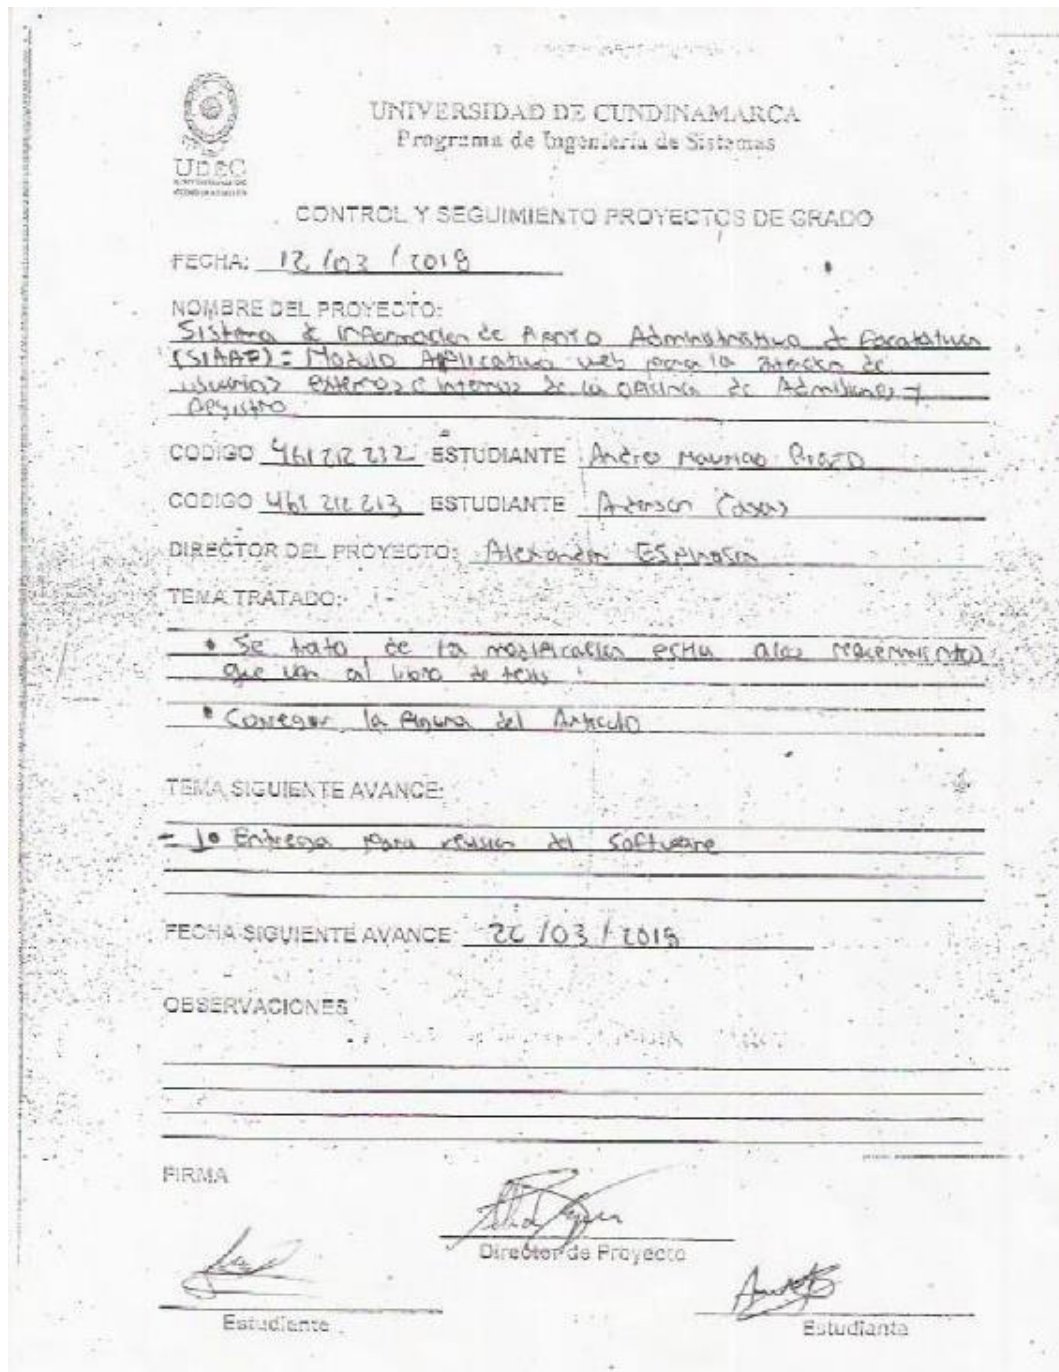 UNIVERSIDAD DE CUNDINAMARCA
Programa de Ingeniería de Sistemas
UDEC
CONTROL Y SEGUIMIENTO PROYECTOS DE GRADO
FECHA: 12 / 03 / 2018
NOMBRE DEL PROYECTO:
Sistema de Informacion de Apoyo Administrativo de Facatativa
(SIAAF) = Modulo Aplicativo web para la atencion de
usuarios externos e internos de la oficina de Admisiones y
Registro
CODIGO 461212232 ESTUDIANTE Andres Mauricio
CODIGO 461212213 ESTUDIANTE Anderson Casas
DIRECTOR DEL PROYECTO: Alexander Espinosa
TEMA TRATADO:
• Se trato de la modificacion a los requerimientos
que van al libro de tesis
• Corregir la figura del Articulo
TEMA SIGUIENTE AVANCE:
- 1º Entrega para revision del Software
FECHA SIGUIENTE AVANCE: /03 / 2018
OBSERVACIONES
FIRMA
Director de Proyecto
Estudiante
Estudiante